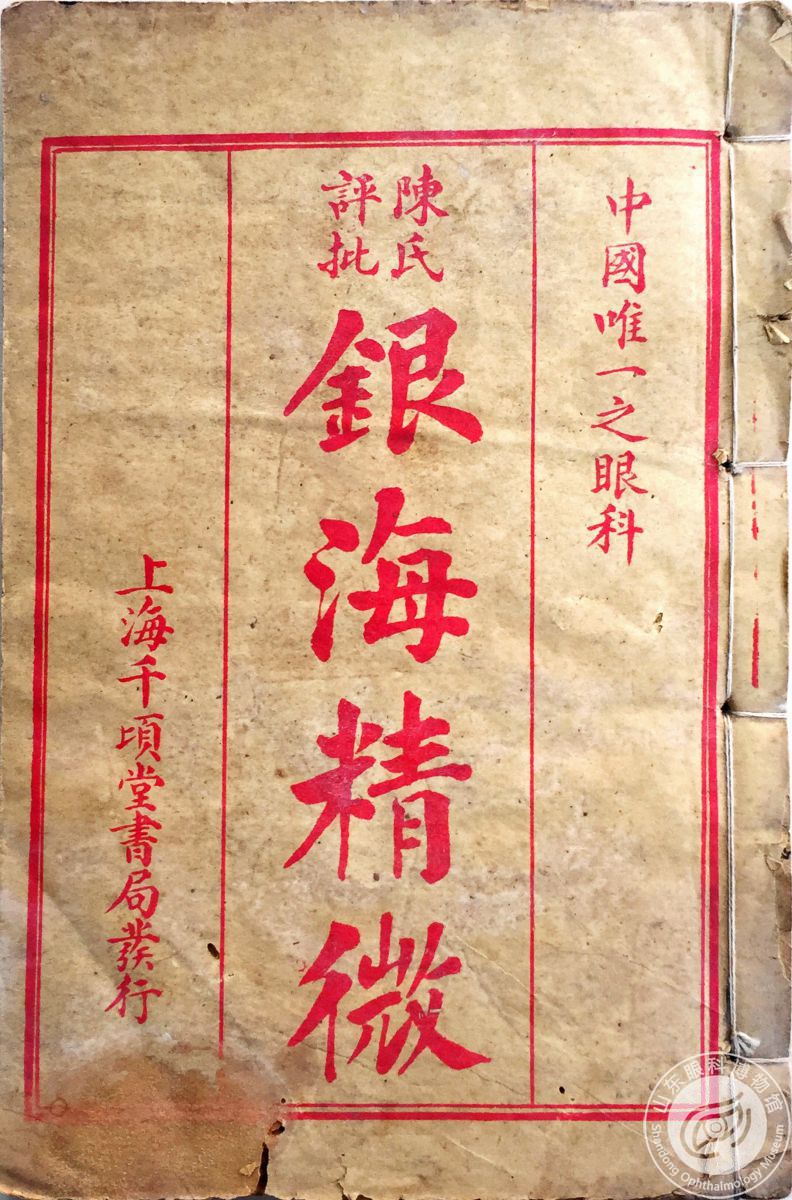 中國唯一之眼科
陳氏
評批
銀海精微
上海千頃堂書局發行
山东眼科博物馆
Shandong Ophthalmology Museum